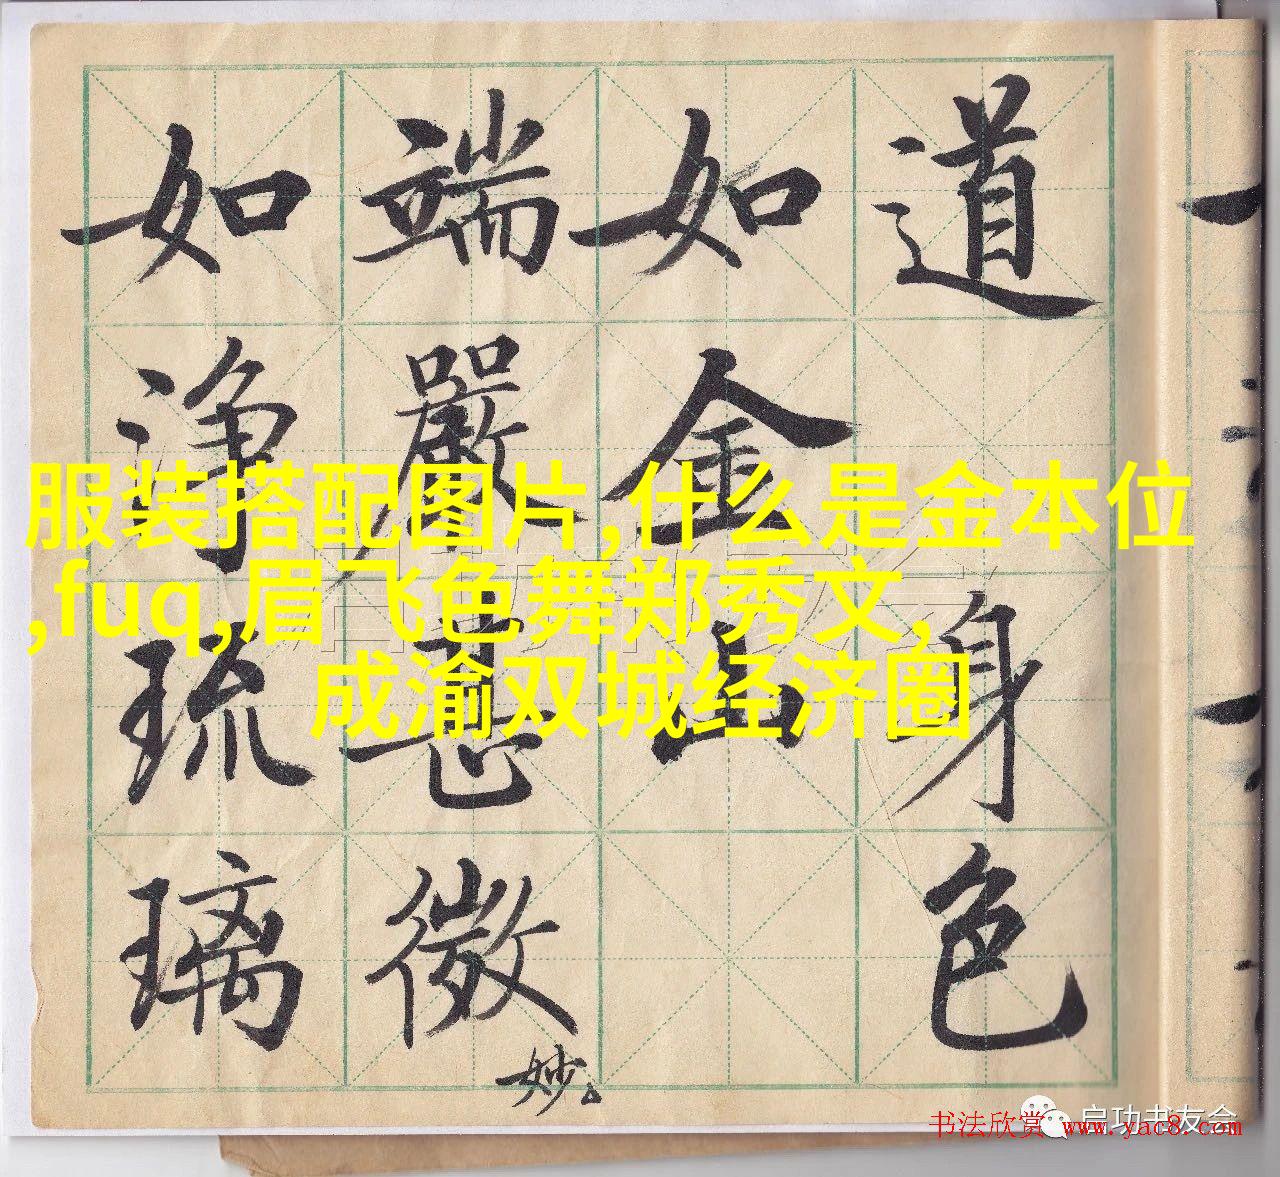 道
身
色
如
金
山
端
嚴
甚
微
妙
如
淨
琉
璃
服装搭配图片,什么是金本位
,fuq,眉飞色舞郑秀文,
成渝双城经济圈
启功书友会
书法欣赏 www.yac8.com